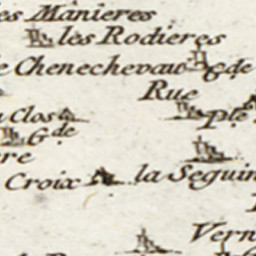 es Manieres
les Rodieres
e Chenechevaux G.de
Rue
Clos
G.de Ple
re
Croix la Seguin
Vern